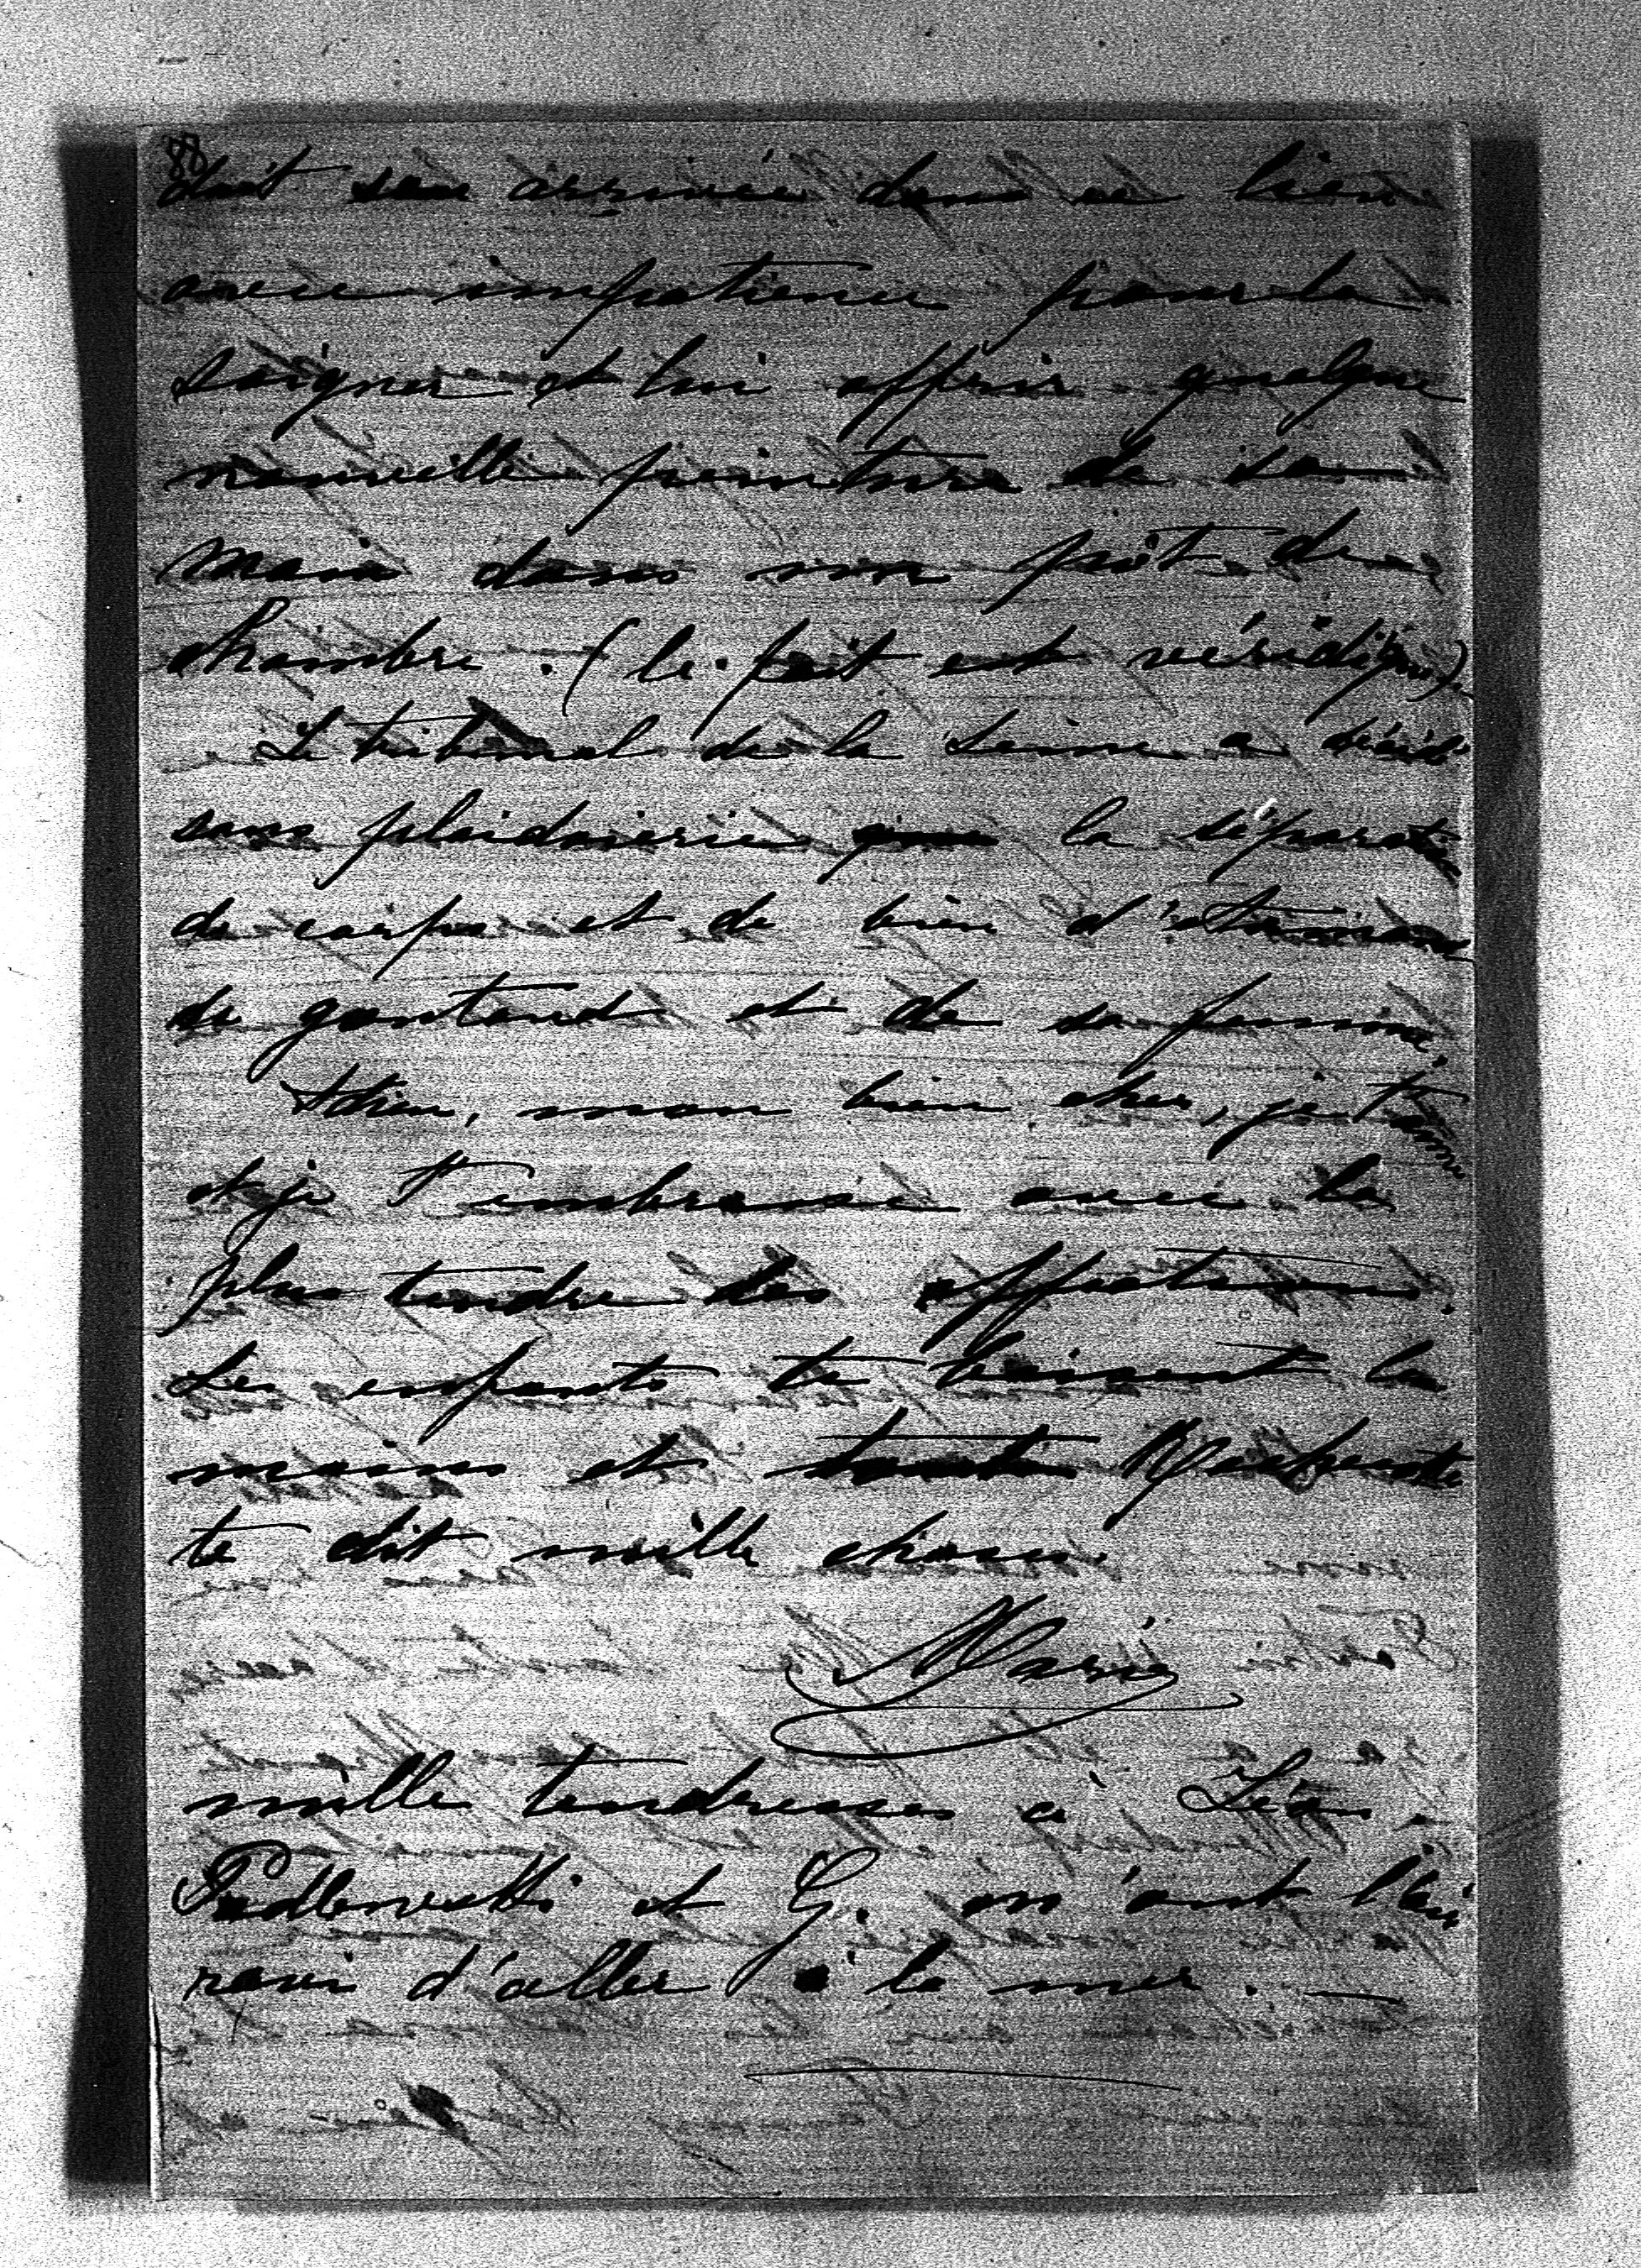 88
doit son arrivée dans ce lieu
avec impatience pour la
soigner et lui offrir quelque
nouvelle peinture de sa
main dans un pôt de
chambre. (le fait est véridique).
Le tribunal de la Seine a décidé
sans plaidoierie que la séparation
de corps et de bien d'
de gontaud et de sa femme.
Adieu, mon bien cher, je t'aime
et je t'embrasse avec la
plus tendre des affections.
Les enfants te baisent les
mains et
te dit mille choses.
Marie
mille tendresses à Léon.
et G. m'ont l'air
ravi d'aller à la mer. —